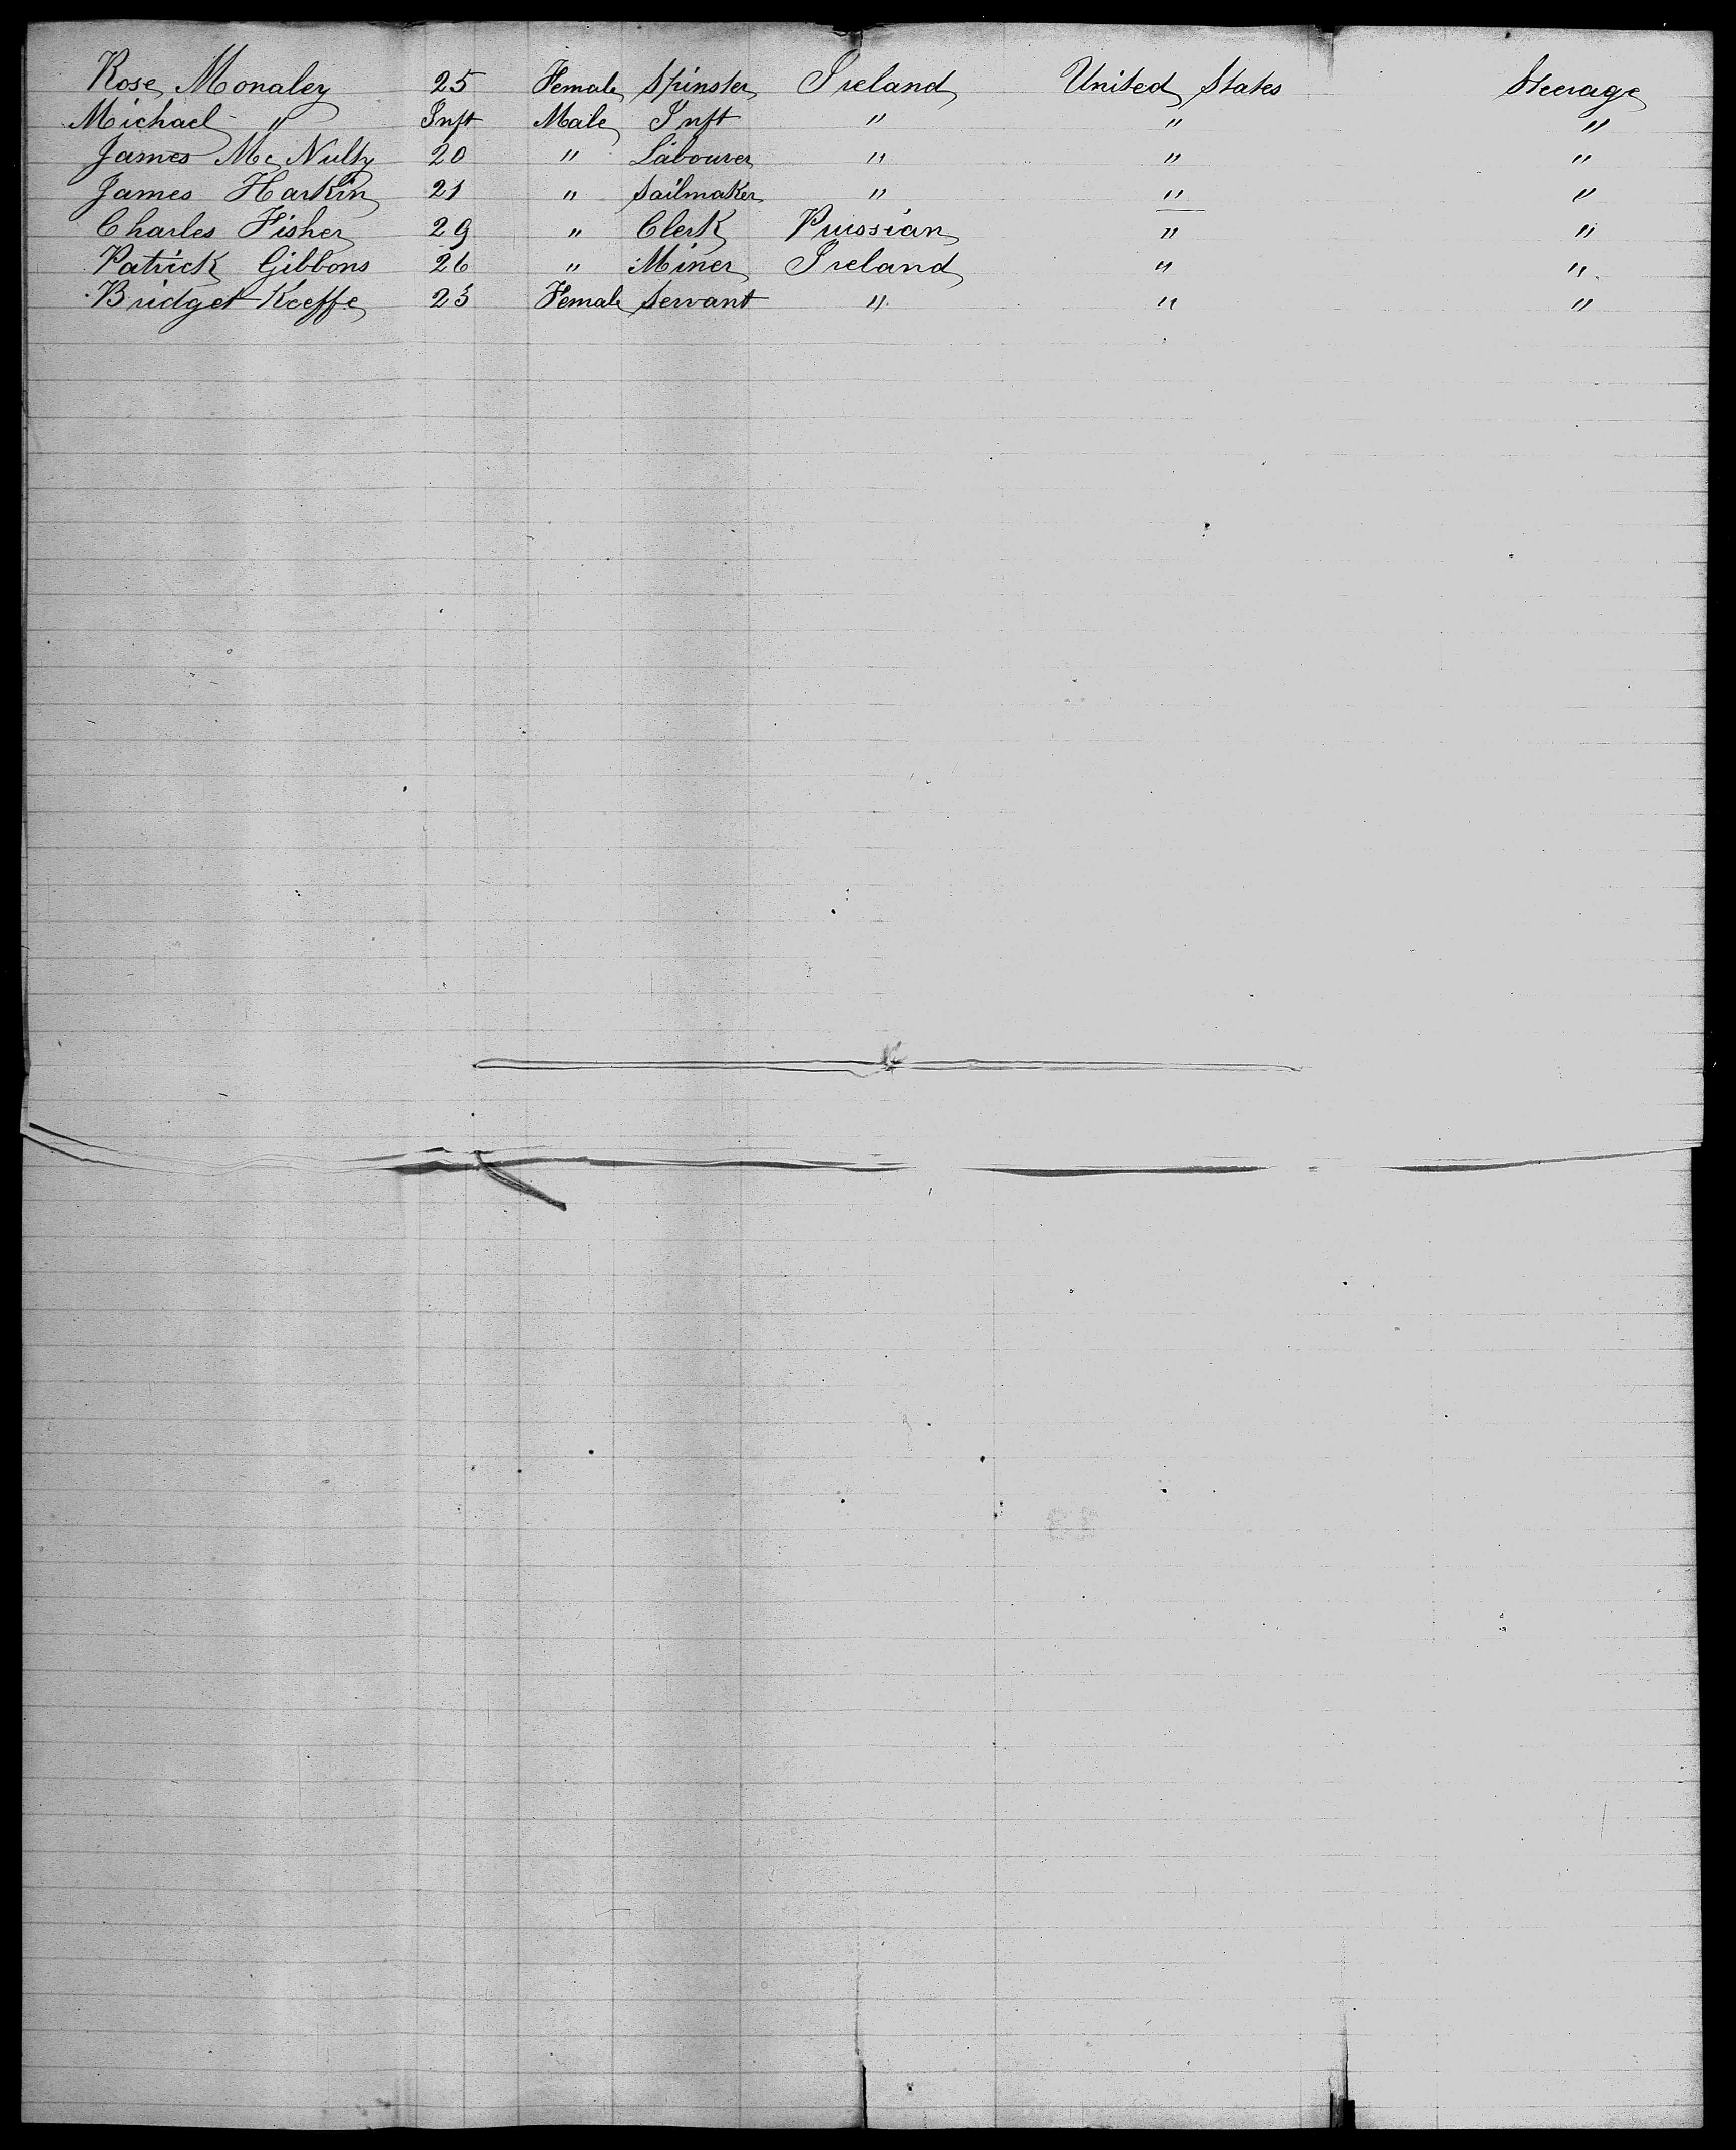 Rose Monaley 25 Female Spinster Ireland United States Steerage
Michael " Inft Male Inft " " "
James Mc Nulty 20 " Labourer " " "
James Harkin 21 " Sailmaker " " "
Charles Fisher 29 " Clerk Prussian " "
Patrick Gibbons 26 " Miner Ireland " "
Bridget Keeffe 23 Female Servant " " "